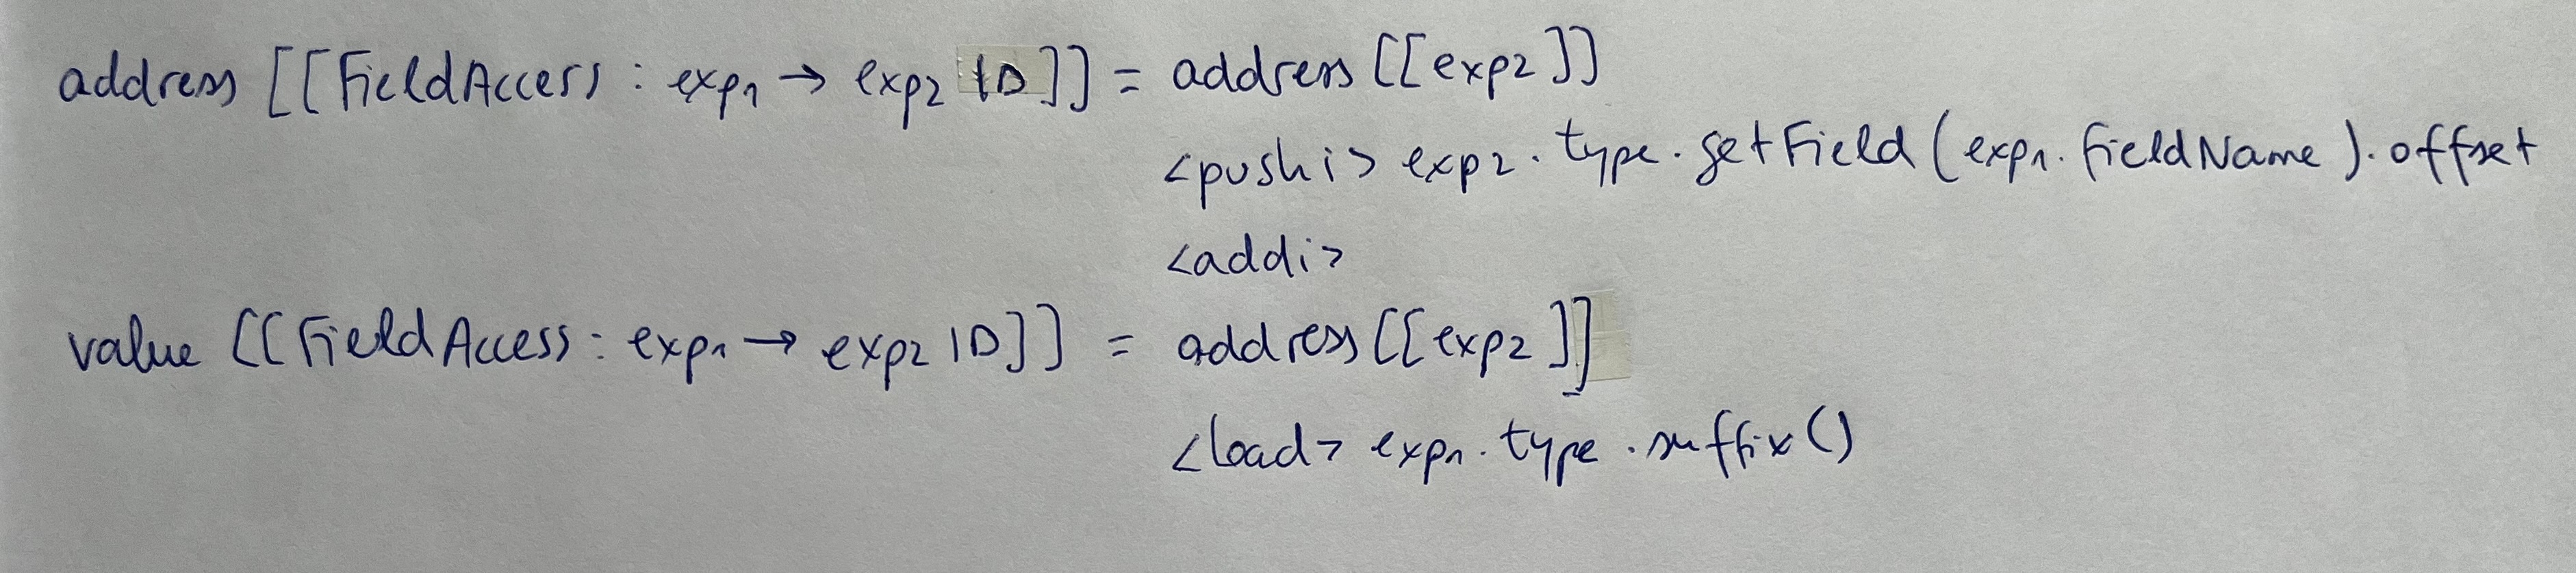 address [[FieldAccess : exp1 → exp2 ID]] = address [[exp2]]
<pushi> exp2.type.getField(exp1.fieldName).offset
<addi>
value [[FieldAccess : exp1 → exp2 ID]] = address [[exp2]]
<load> exp1.type.suffix()